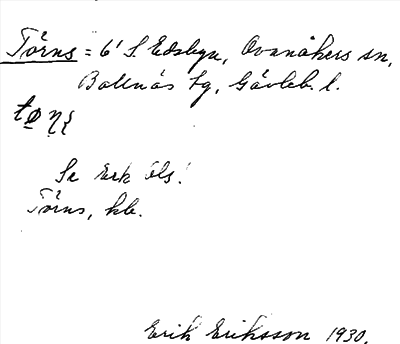 Törns = 6' S. Edsbyn, Ovanåkers sn,
Bollnäs tg, Gävleb. l.
tøṇ
Se Erk Ols!
Törns, hb.
Erik Eriksson 1930.